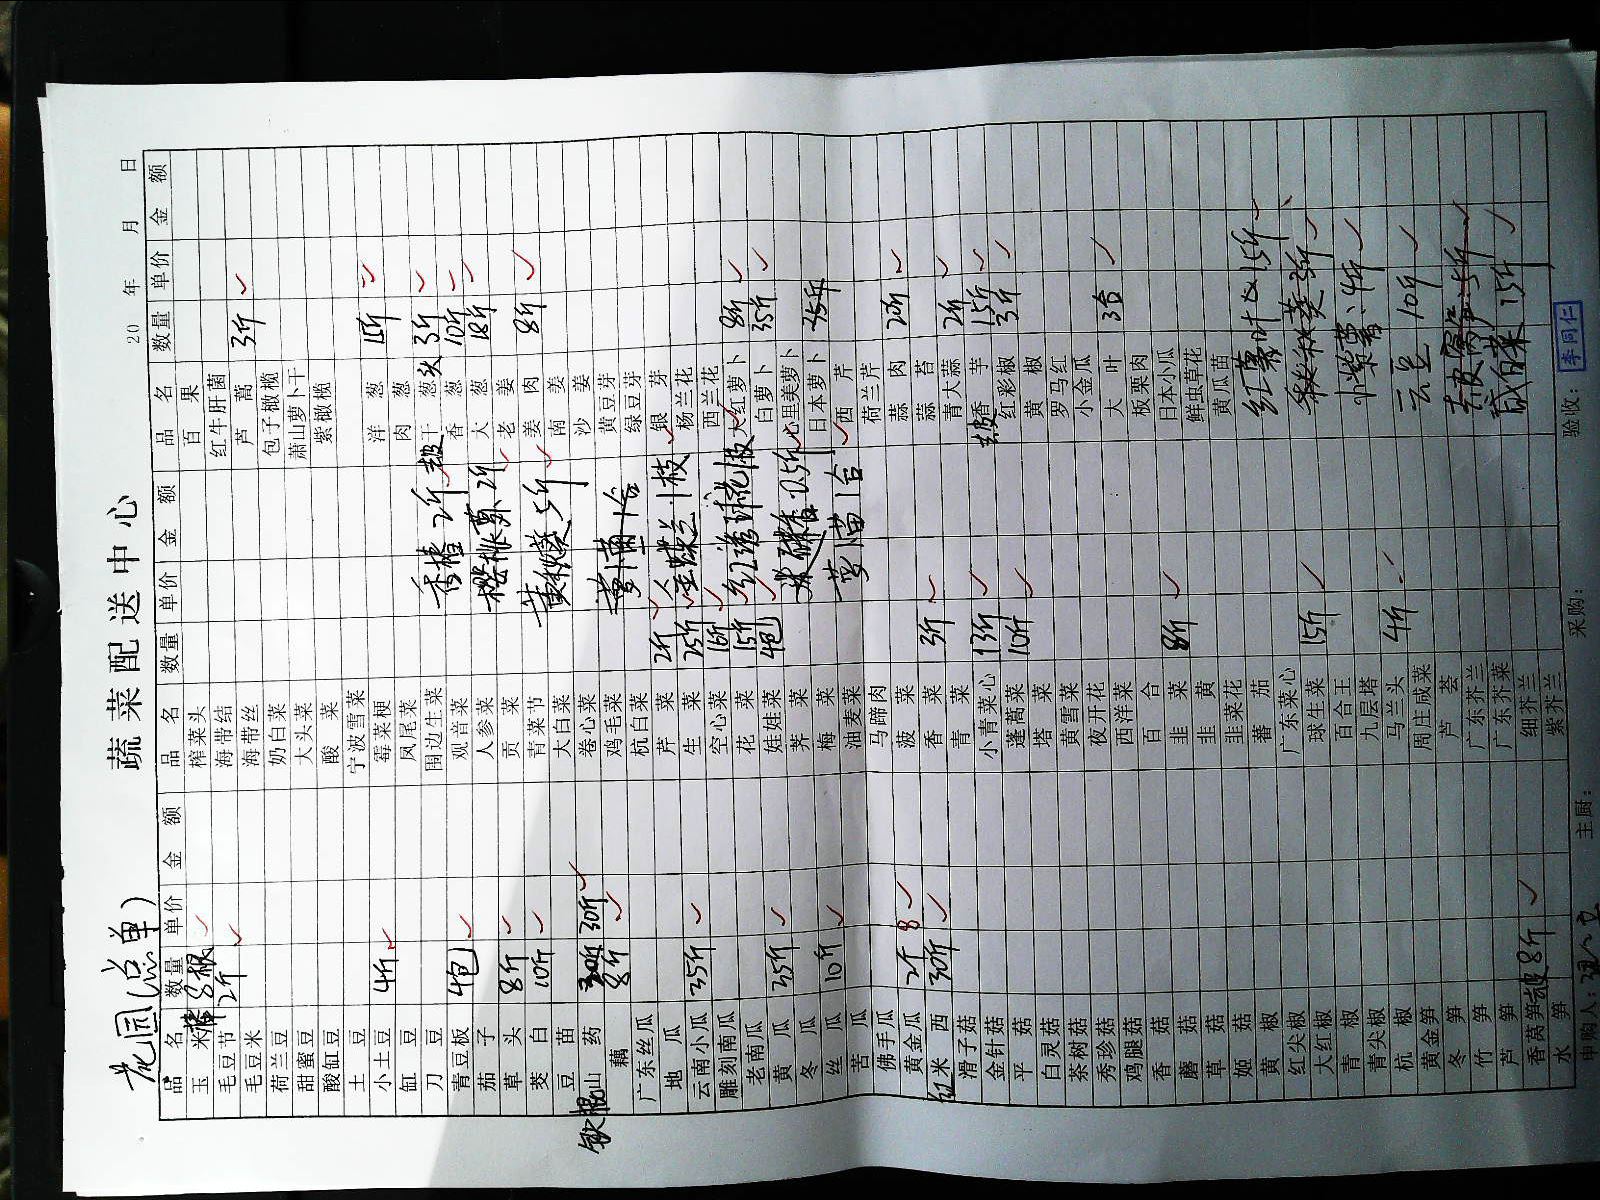 花园(总单)
蔬菜配送中心
20 年 月 日
品名 数量 单价 金额
玉米 8根
毛豆节 2斤
毛豆米
荷兰豆
甜蜜豆
酸缸豆
土豆
小土豆 4斤
缸豆
刀豆
青豆板 4包
茄子
草头 8斤
茭白 10斤
豆苗
铁棍山药 30斤
藕 8斤
广东丝瓜
地瓜
云南小瓜 35斤
雕刻南瓜
老南瓜
黄瓜 35斤
冬瓜
丝瓜 10斤
苦瓜
佛手瓜
黄金瓜 2斤 8
红米西 30斤
滑子菇
金针菇
平菇
白灵菇
茶树菇
秀珍菇
鸡腿菇
香菇
蘑菇
草菇
姬菇
黄椒
红尖椒
大红椒
青椒
青尖椒
杭椒
黄金笋
冬笋
竹笋
芦笋
香莴笋 8斤
水笋
品名 数量 单价 金额
榨菜头
海带结
海带丝
奶白菜
大头菜
酸菜
宁波雪菜
霉菜梗
凤尾菜
围边生菜
观音菜
人参菜
贡菜
青菜节
大白菜
卷心菜
鸡毛菜
杭白菜
芹菜 2斤
生菜 25斤
空心菜 16斤
花菜 15斤
娃娃菜 4包
荠菜
梅菜
油麦菜
马蹄肉
菠菜
香菜 3斤
青菜
小青菜心 13斤
蓬蒿菜 10斤
塔菜
黄雪菜
夜开花
西洋菜
百合
韭菜 8斤
韭黄
韭菜花
蕃茄
广东菜心
球生菜 15斤
百合王
九层塔
马兰头 4斤
周庄咸菜
芦荟
广东芥兰
广东芥菜
细芥兰
紫芥兰
秀楂 2斤
樱桃萝 2斤
黄秋葵 5斤
金蝶兰 1枝
萝苗 1合
品名 数量 单价 金额
百果
红牛肝菌
芦蒿 3斤
包子橄榄
萧山萝卜干
紫橄榄
洋葱 15斤
肉葱
干葱 3斤
香葱 10斤
大葱 18斤
老姜
姜肉 8斤
南姜
沙姜
黄豆芽
绿豆芽
银芽
杨兰花
西兰花
大红萝卜 8斤
白萝卜 35斤
心里美萝卜
日本萝卜 25斤
西芹
荷兰芹
蒜肉 20斤
蒜苔
青大蒜 2斤
去皮香芋 15斤
红彩椒 3斤
黄椒
罗马红
小金瓜
大叶 3合
板栗肉
日本小瓜
鲜虫草花
黄瓜苗
红薯叶 15斤
秋葵 3斤
小紫薯 4斤
云豆 10斤
咸白菜 15斤
申购人:
主厨:
采购:
验收: 李同仁